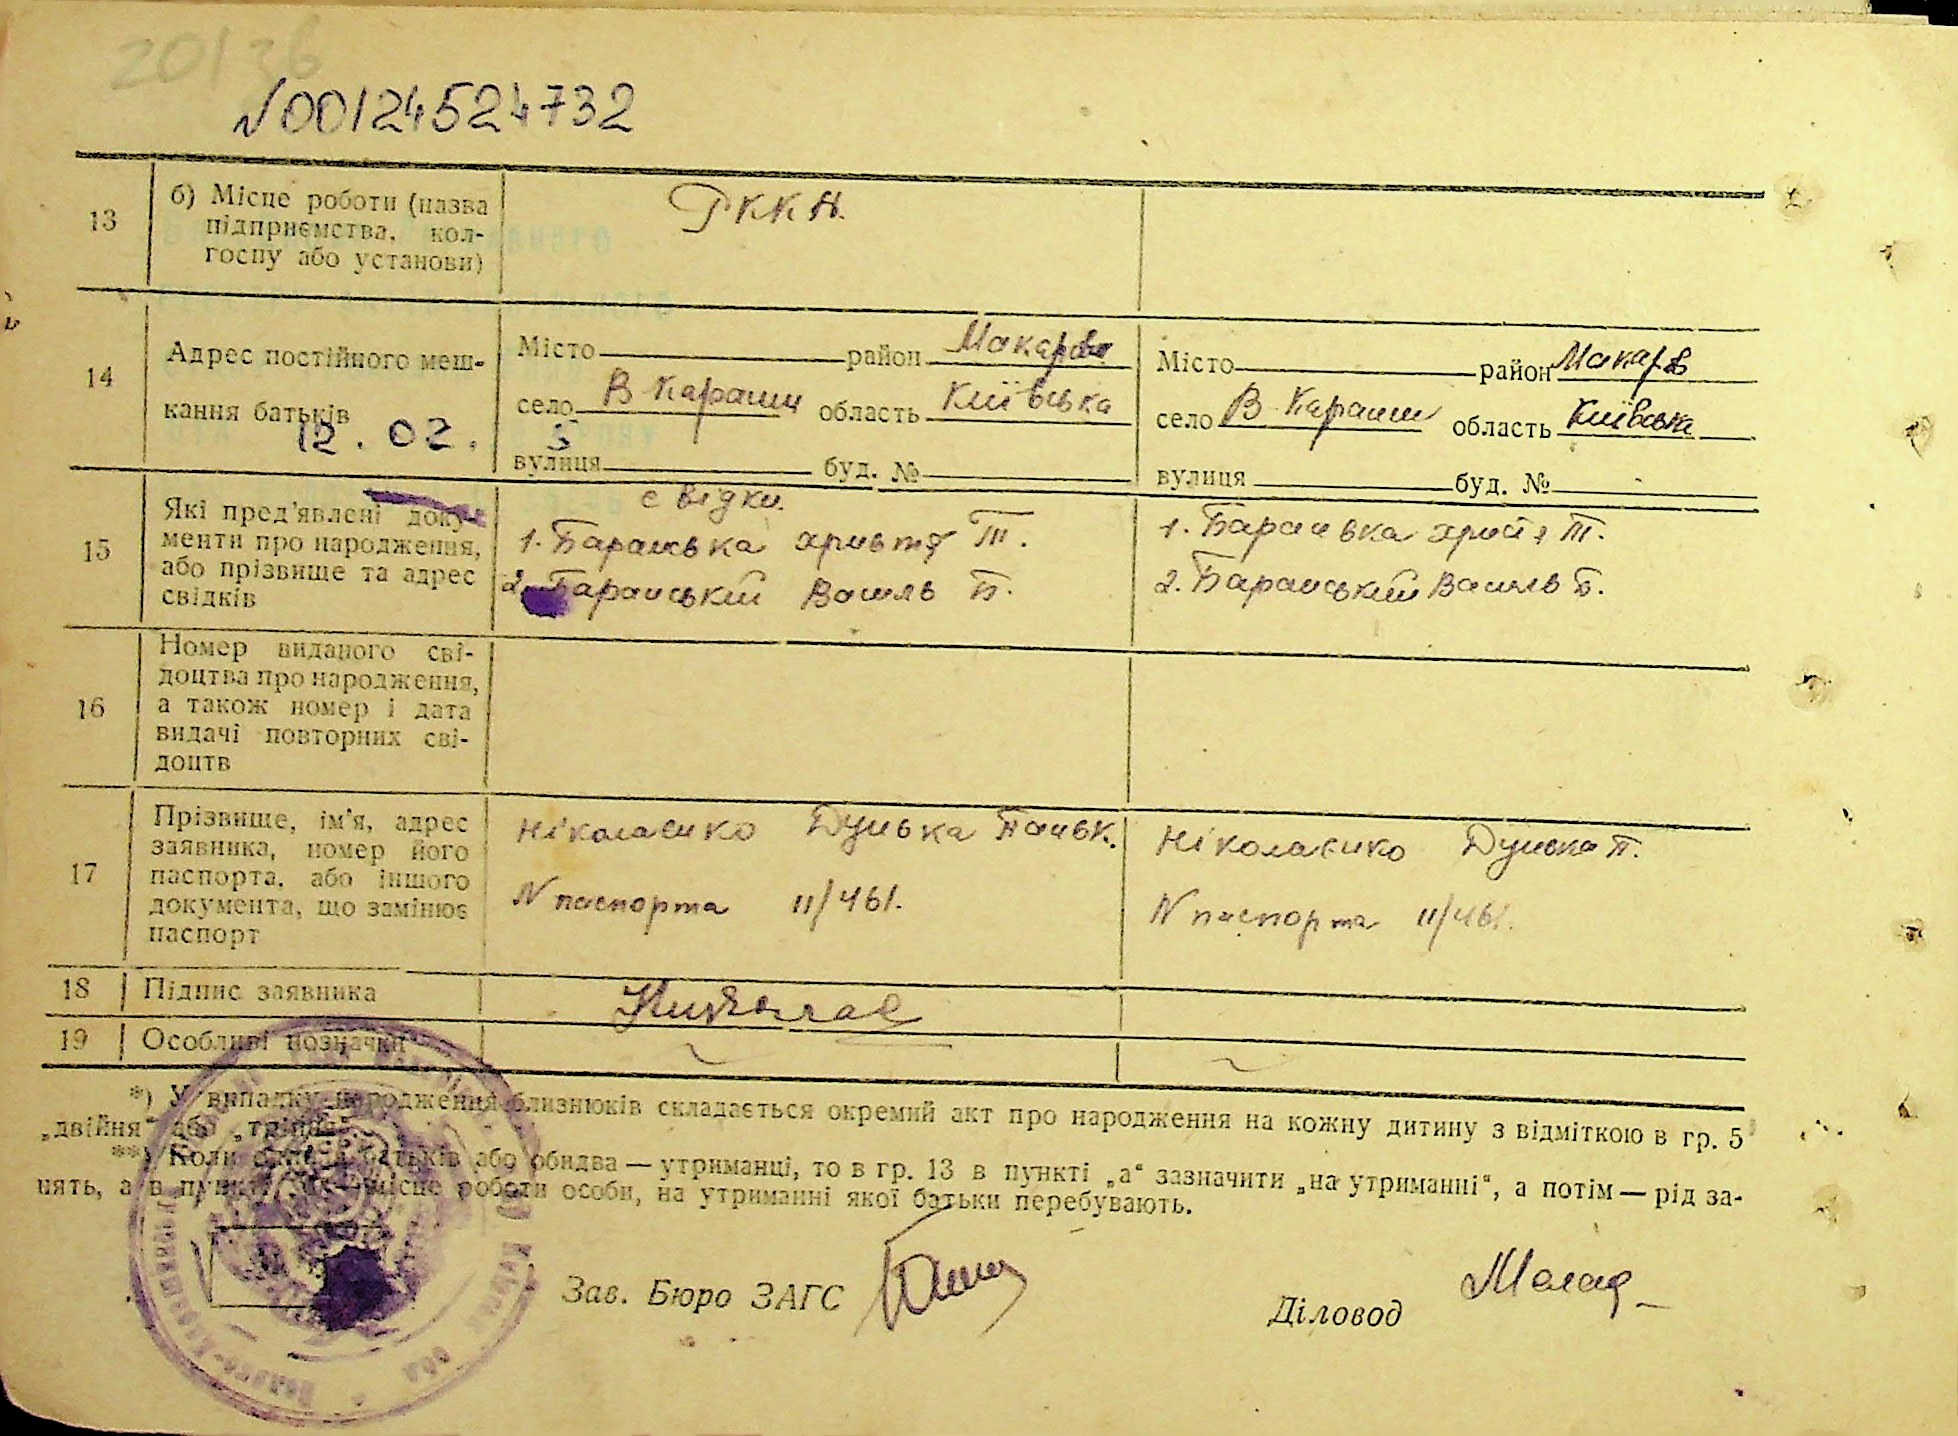 20136
№00124524732
13 б) Місце роботи (назва підприємства, кол-госпу або установи) РККА.
14 Адрес постійного меш-кання батьків
12.02.
Місто район Макарів
село В-Караши область Київська
вулиця буд. №
Місто район Макарів
село В-Караши область Київська
вулиця буд. №
15 Які пред'явлені доку-менти про народження, або прізвище та адрес свідків
свідки.
1. Баранська Христя Т.
2. Баранський Василь Б.
1. Баранська Христя Т.
2. Баранський Василь Б.
16 Номер виданого сві-доцтва про народження, а також номер і дата видачі повторних сві-доцтв
17 Прізвище, ім'я, адрес заявника, номер його паспорта, або іншого документа, що замінює паспорт
Ніколаєнко Дунька Паньк.
N паспорта 11/461.
Ніколаєнко Дунька П.
N паспорта 11/461.
18 Підпис заявника
19 Особливі позначки
*) У випадку народження близнюків складається окремий акт про народження на кожну дитину з відміткою в гр. 5
„двійня“ або „трійня“.
**) Коли один з батьків або обидва — утриманці, то в гр. 13 в пункті „а“ зазначити „на утриманні“, а потім — рід за-
нять, а в пункті місце роботи особи, на утриманні якої батьки перебувають.
Зав. Бюро ЗАГС
Діловод